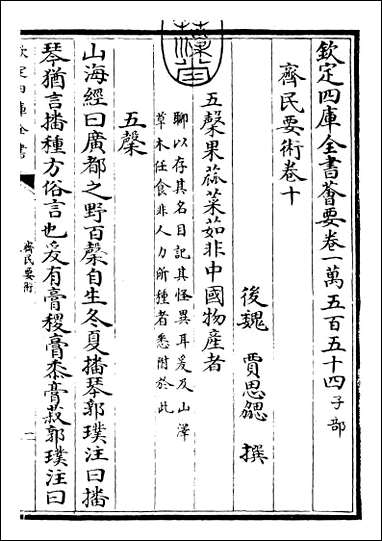 欽定四庫全書薈要卷一萬五百五十四子部
齊民要術卷十
後魏 賈思勰 撰
五穀果蓏菜茹非中國物產者
聊以存其名目記其怪異耳爰及山澤
草木任食非人力所種者悉附於此
五穀
山海經曰廣都之野百穀自生冬夏播琴郭璞注曰播
琴猶言播種方俗言也爰有膏稷膏黍膏菽郭璞注曰
欽定四庫全書
齊民要術
一